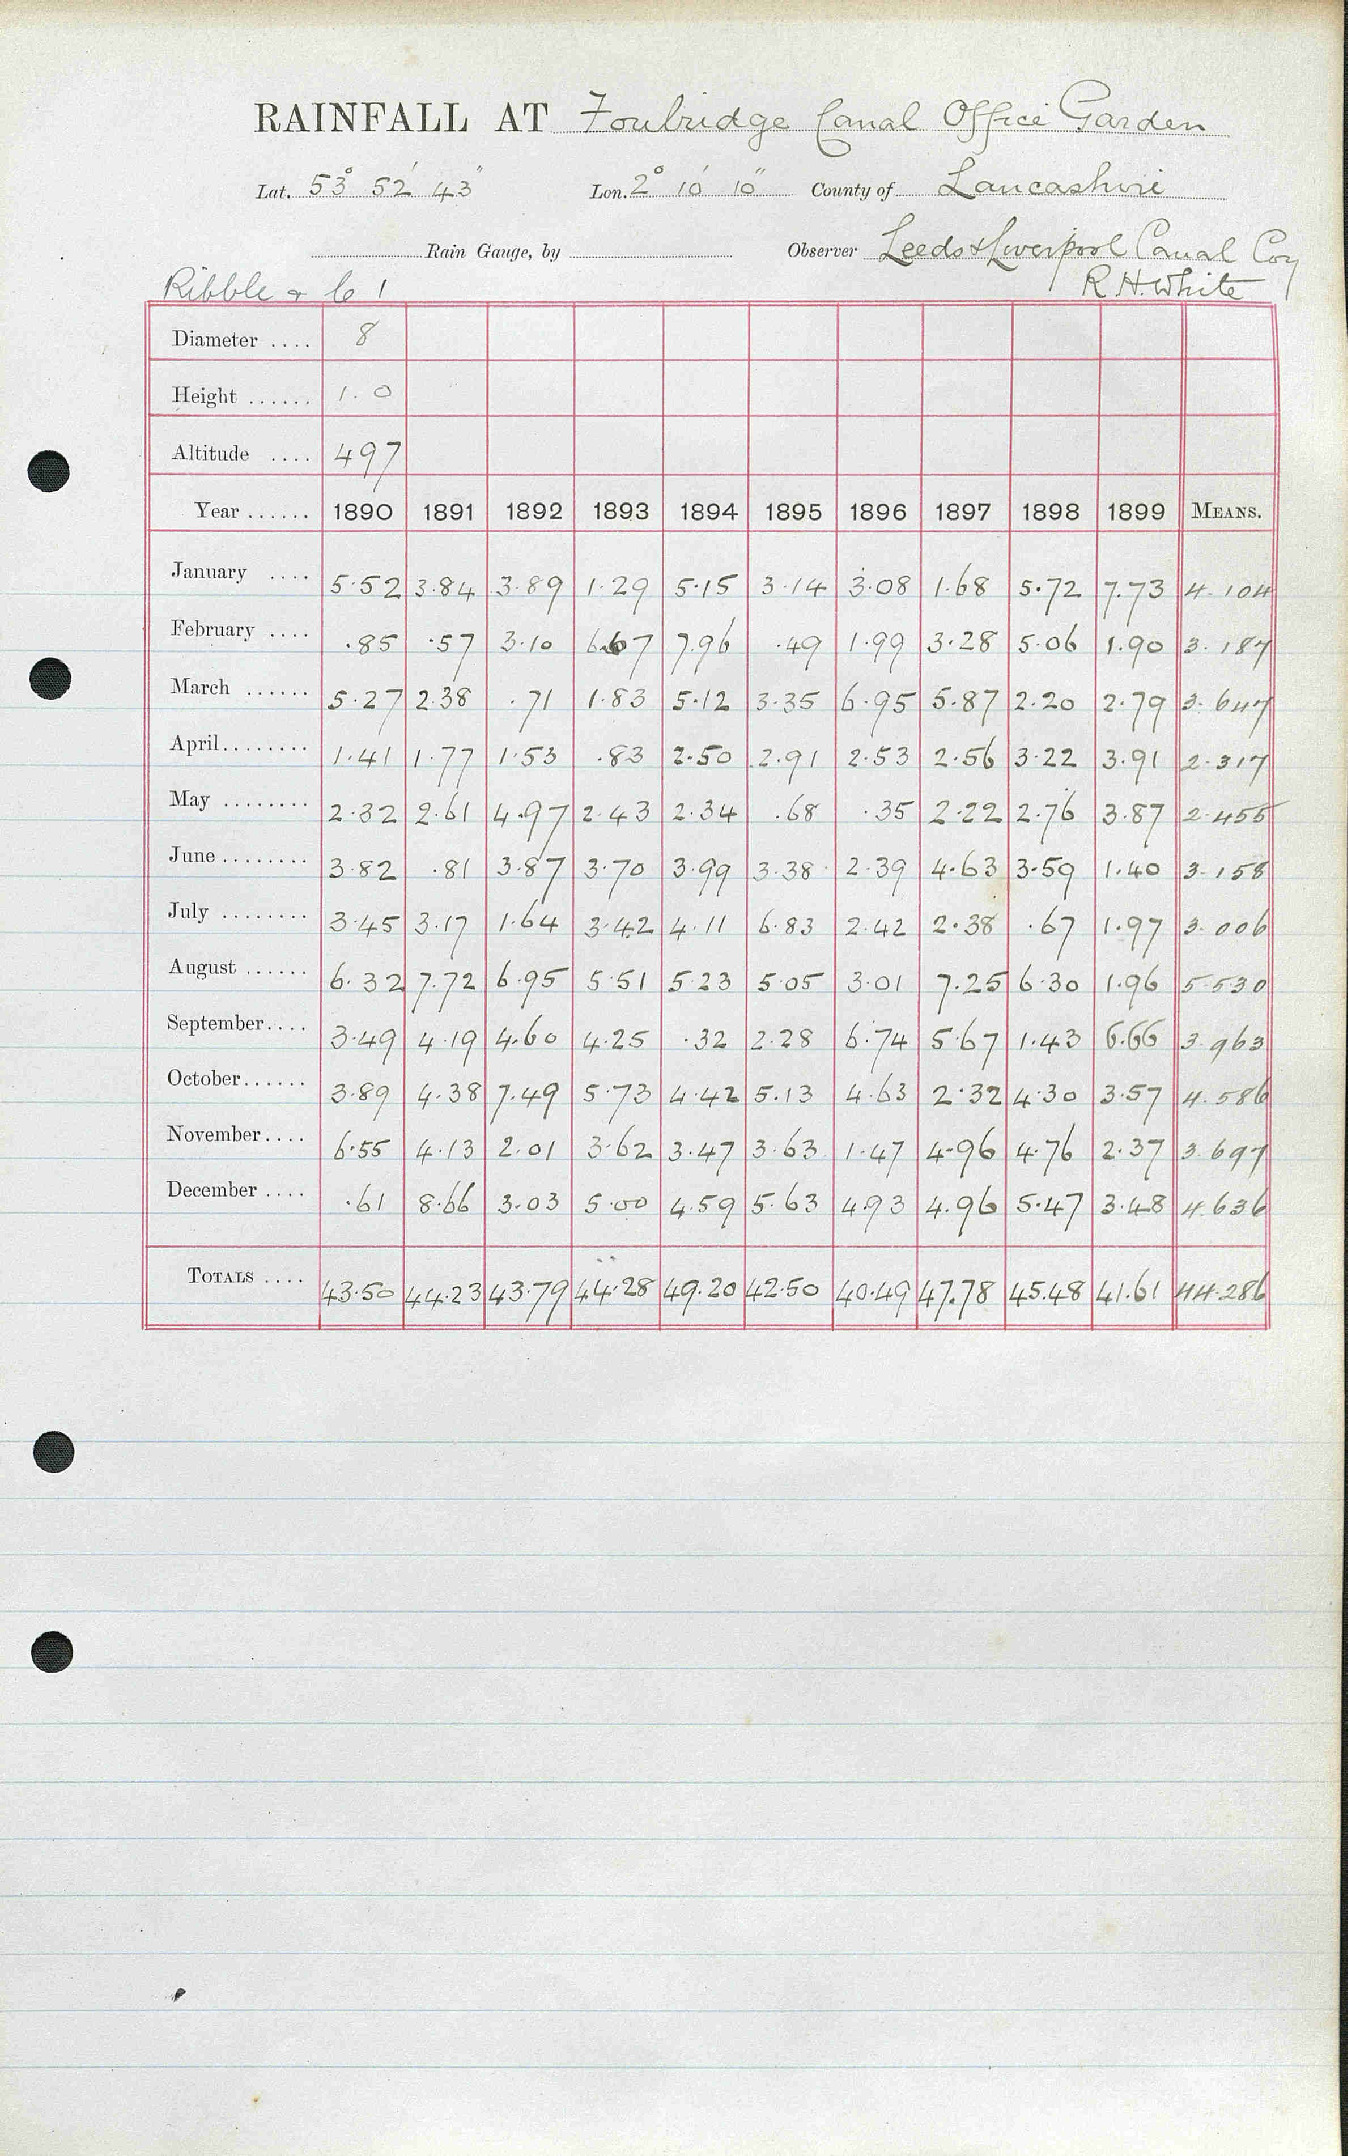 RAINFALL AT Foulridge Canal Office Garden
Lat. 53° 52' 43" Lon. 2° 10' 10" County of Lancashire
Rain Gauge, by Observer Leeds & Liverpool Canal Coy
Ribble & C 1 R H White
Diameter .... 8
Height ...... 1.0
Altitude .... 497
Year ...... 1890 1891 1892 1893 1894 1895 1896 1897 1898 1899 MEANS.
January .... 5.52 3.84 3.89 1.29 5.15 3.14 3.08 1.68 5.72 7.73 4.104
February .... .85 .57 3.10 6.67 7.96 .49 1.99 3.28 5.06 1.90 3.187
March ...... 5.27 2.38 .71 1.83 5.12 3.35 6.95 5.87 2.20 2.79 3.647
April........ 1.41 1.77 1.53 .83 2.50 2.91 2.53 2.56 3.22 3.91 2.317
May ........ 2.32 2.61 4.97 2.43 2.34 .68 .35 2.22 2.76 3.87 2.455
June ........ 3.82 .81 3.87 3.70 3.99 3.38 2.39 4.63 3.59 1.40 3.158
July ........ 3.45 3.17 1.64 3.42 4.11 6.83 2.42 2.38 .67 1.97 3.006
August ...... 6.32 7.72 6.95 5.51 5.23 5.05 3.01 7.25 6.30 1.96 5.530
September.... 3.49 4.19 4.60 4.25 .32 2.28 6.74 5.67 1.43 6.66 3.963
October...... 3.89 4.38 7.49 5.73 4.42 5.13 4.63 2.32 4.30 3.57 4.586
November.... 6.55 4.13 2.01 3.62 3.47 3.63 1.47 4.96 4.76 2.37 3.697
December .... .61 8.66 3.03 5.00 4.59 5.63 4.93 4.96 5.47 3.48 4.636
TOTALS .... 43.50 44.23 43.79 44.28 49.20 42.50 40.49 47.78 45.48 41.61 44.286